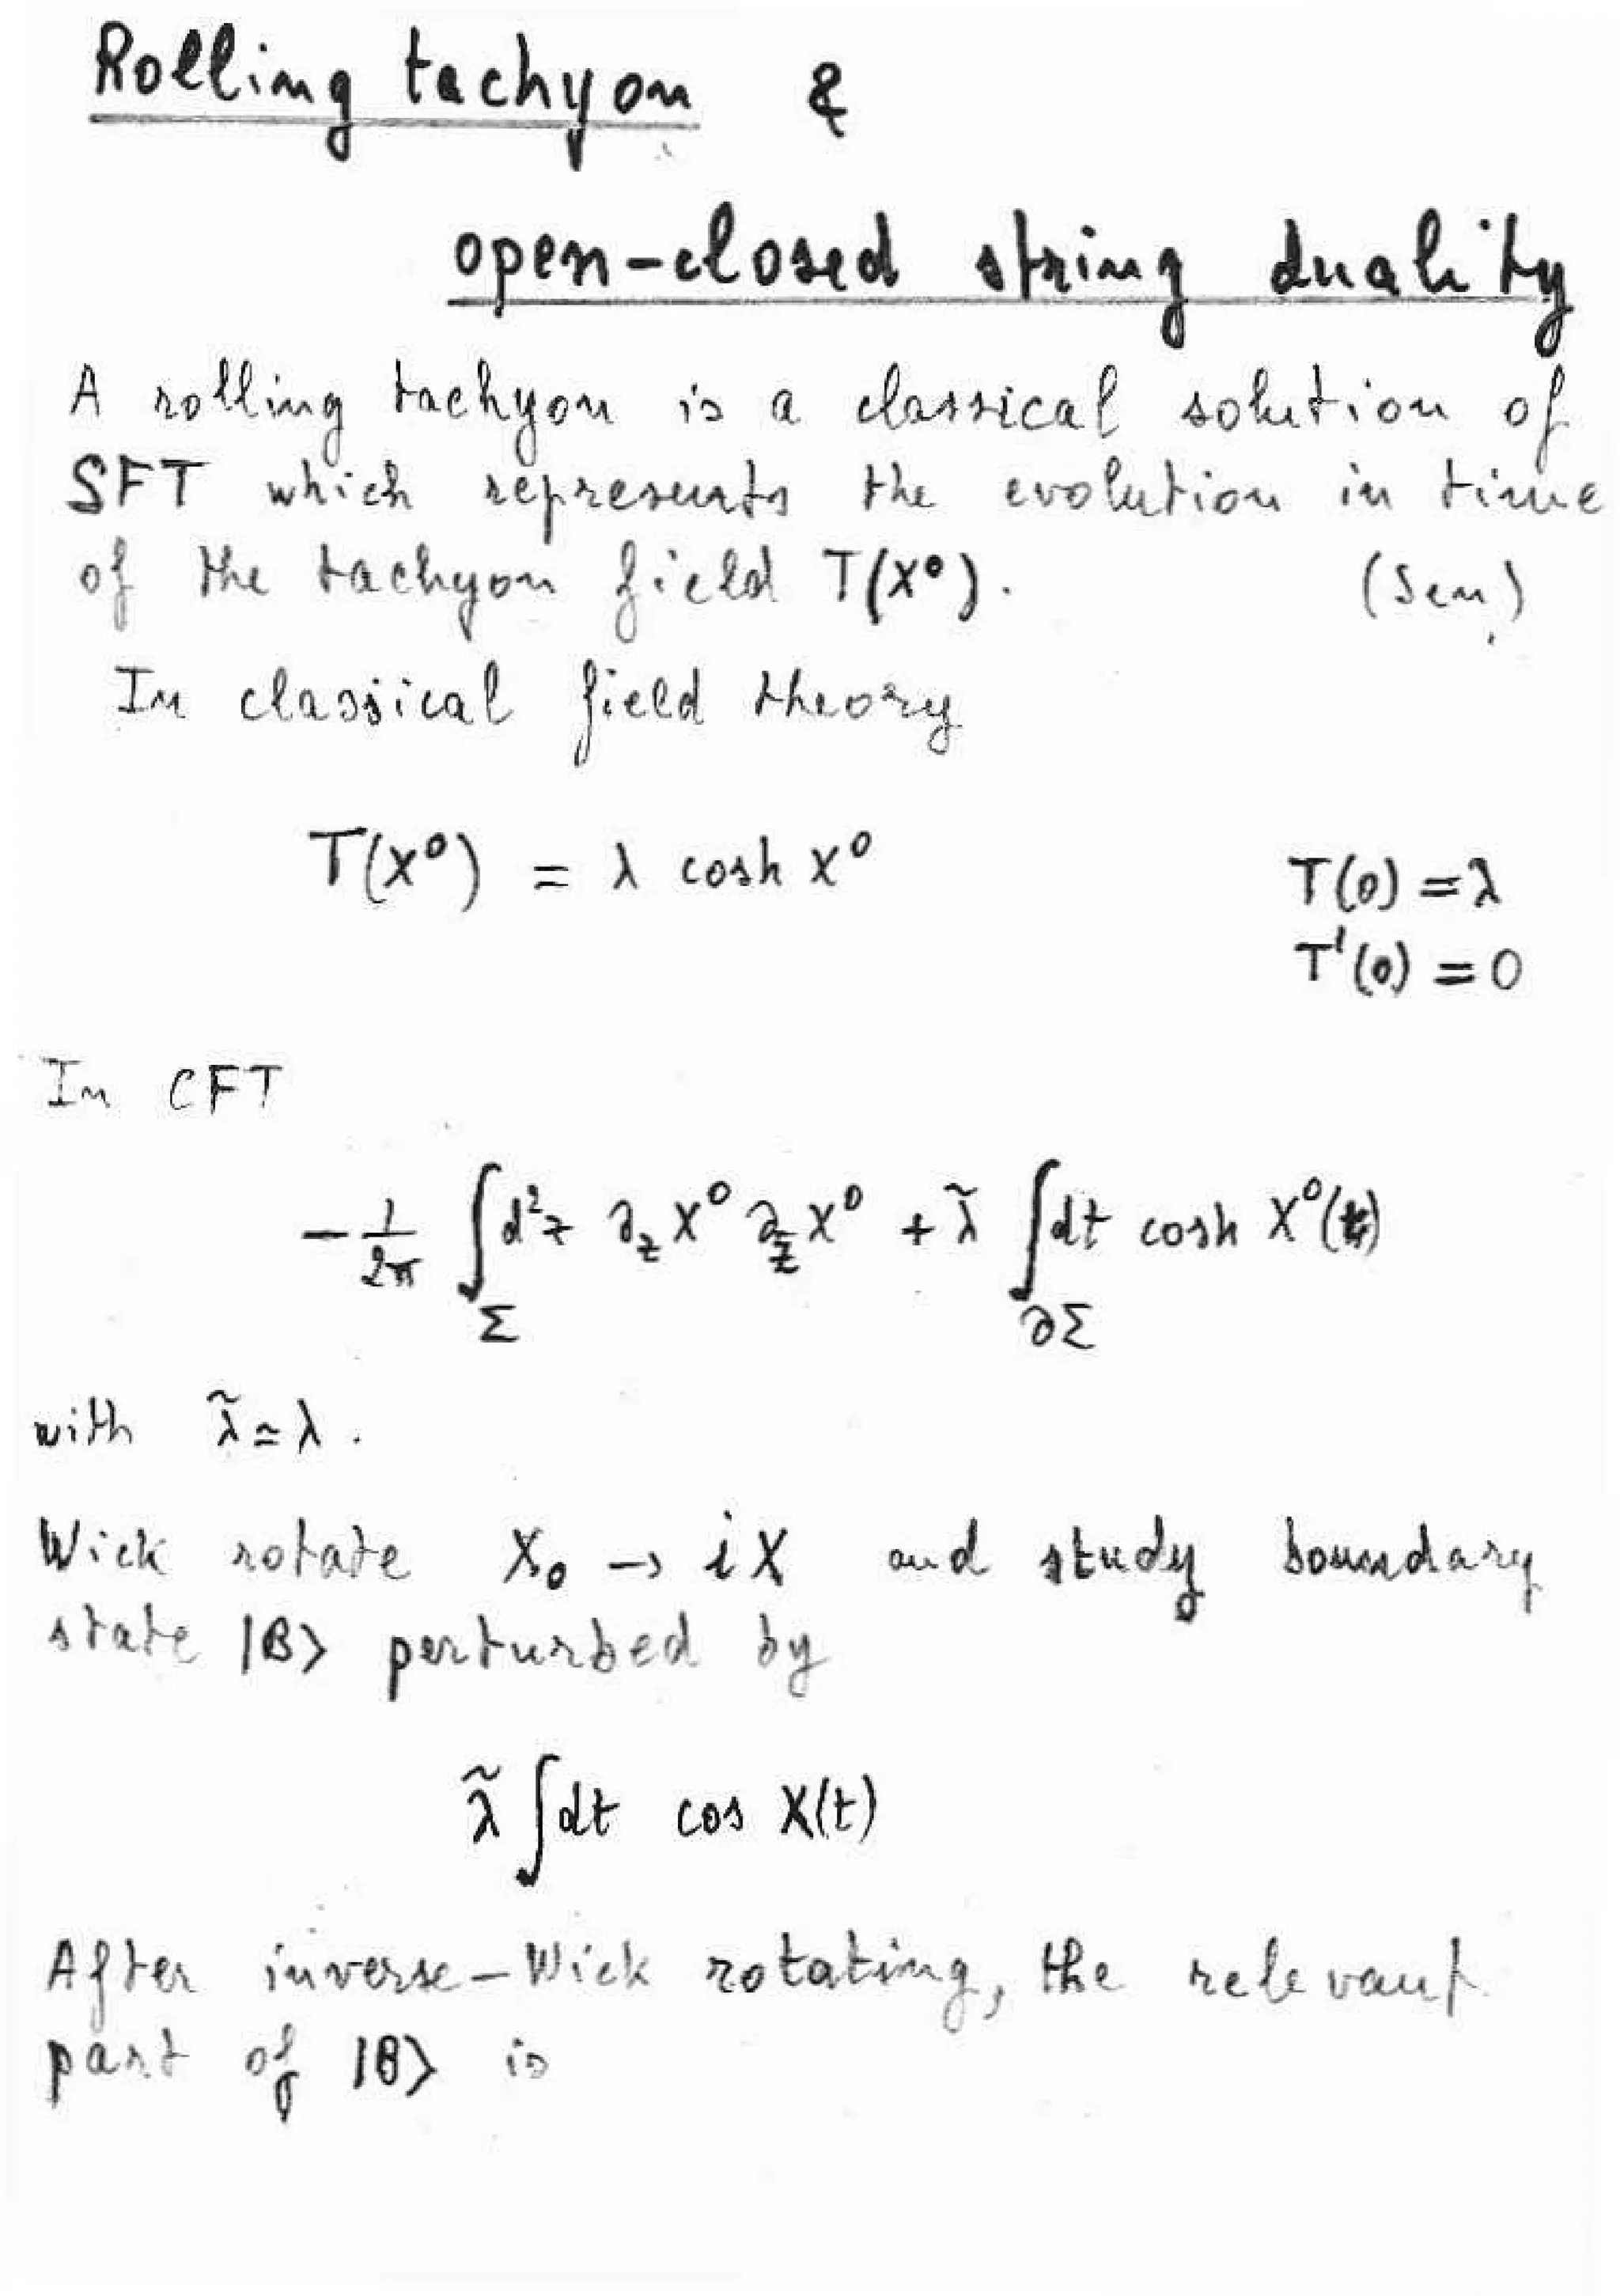 Rolling tachyon &
open-closed string duality
A rolling tachyon is a classical solution of
SFT which represents the evolution in time
of the tachyon field T(X⁰). (Sen)
In classical field theory
T(X⁰) = λ cosh X⁰ T(0) = λ
T'(0) = 0
In CFT
-1/2π ∫_Σ d²z ∂_z X⁰ ∂_z̄ X⁰ + λ̃ ∫_∂Σ dt cosh X⁰(t)
with λ̃ ≃ λ.
Wick rotate X₀ → iX and study boundary
state |B> perturbed by
λ̃ ∫dt cos X(t)
After inverse-Wick rotating, the relevant
part of |B> is